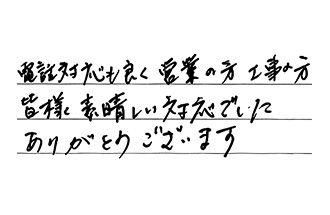 電話対応も良く 営業の方 工事の方
皆様く素晴しい対応でした
ありがとうございます